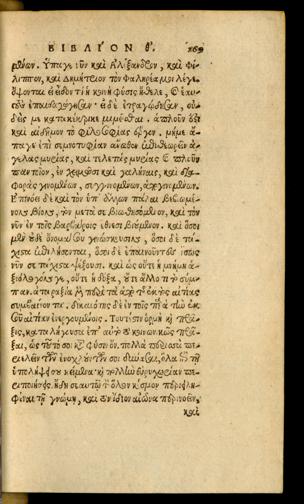 ΒΙΒΛΙΌΝ θ'. 169
Ὕπαγε νῦν καὶ Ἀλέξανδρον, καὶ Φί-
λιππον, καὶ Δημήτριον τὸν Φαληρέα μοι λέγε.
ὄψονται εἰ εἶδον τί ἡ κοινὴ φύσις ἤθελε, καὶ ἑαυ-
τοὺς ἐπαιδαγώγησαν· εἰ δὲ ἐτραγῴδησαν, οὐ-
δείς με κατακέκρικε μιμεῖσθαι. ἁπλοῦν ἐστι
καὶ αἰδῆμον τὸ φιλοσοφίας ἔργον. μή με ἄ-
παγε ἐπὶ σεμνοτυφίαν ἄνωθεν ἐπιθεωρεῖν ἀ-
γέλας μυρίας, καὶ τελετὰς μυρίας καὶ πλοῦν
παντοῖον, ἐν χειμῶσι καὶ γαλήναις, καὶ δια-
φορὰς γινομένων, συγγινομένων, ἀπογινομένων.
Ἐπινόει δὲ καὶ τὸν ὑπ' ἄλλων πάλαι βεβιωμέ-
νον βίον, τὸν μετὰ σὲ βιωθησόμενον, καὶ τὸν
νῦν ἐν τοῖς βαρβάροις ἔθνεσι βιούμενον. καὶ ὅσοι
μὲν οὐδὲ ὄνομά σου γινώσκουσιν, ὅσοι δὲ τά-
χιστα ἐπιλήσονται, ὅσοι δὲ ἐπαινοῦντες ἴσως
νῦν σε τάχιστα ψέξουσι. καὶ ὡς οὔτε ἡ μνήμη ἀ-
ξιόλογόν γε, οὔτε ἡ δόξα, οὔτε ἄλλο τι τὸ σύμ-
παν ἀταραξία μὲν περὶ τὰ ἀπὸ τῆς ἐκτὸς αἰτίας
συμβαίνοντα. δικαιότης δὲ ἐν τοῖς παρὰ τὴν ἐκ
σοῦ αἰτίαν ἐνεργουμένοις. Τουτέστιν ὁρμὴ καὶ πρᾶ-
ξις, καταλήγουσα ἐπ' αὐτὸ τὸ κοινωνικῶς πρᾶ-
ξαι, ὡς τοῦτό σοι κατὰ φύσιν ὄν. πολλὰ περισσὰ πε-
ριελεῖν τῶν ἐνοχλούντων σοι δύνασαι, ὅλα ἐπὶ τῇ
ὑπολήψει σου κείμενα· καὶ πολλὴν εὐρυχωρίαν περι-
ποιήσεις. ἤδη σεαυτῷ τὸν ὅλον κόσμον περιειλη-
φέναι τῇ γνώμῃ, καὶ τὸν ἀΐδιον αἰῶνα περινοεῖν,
καὶ